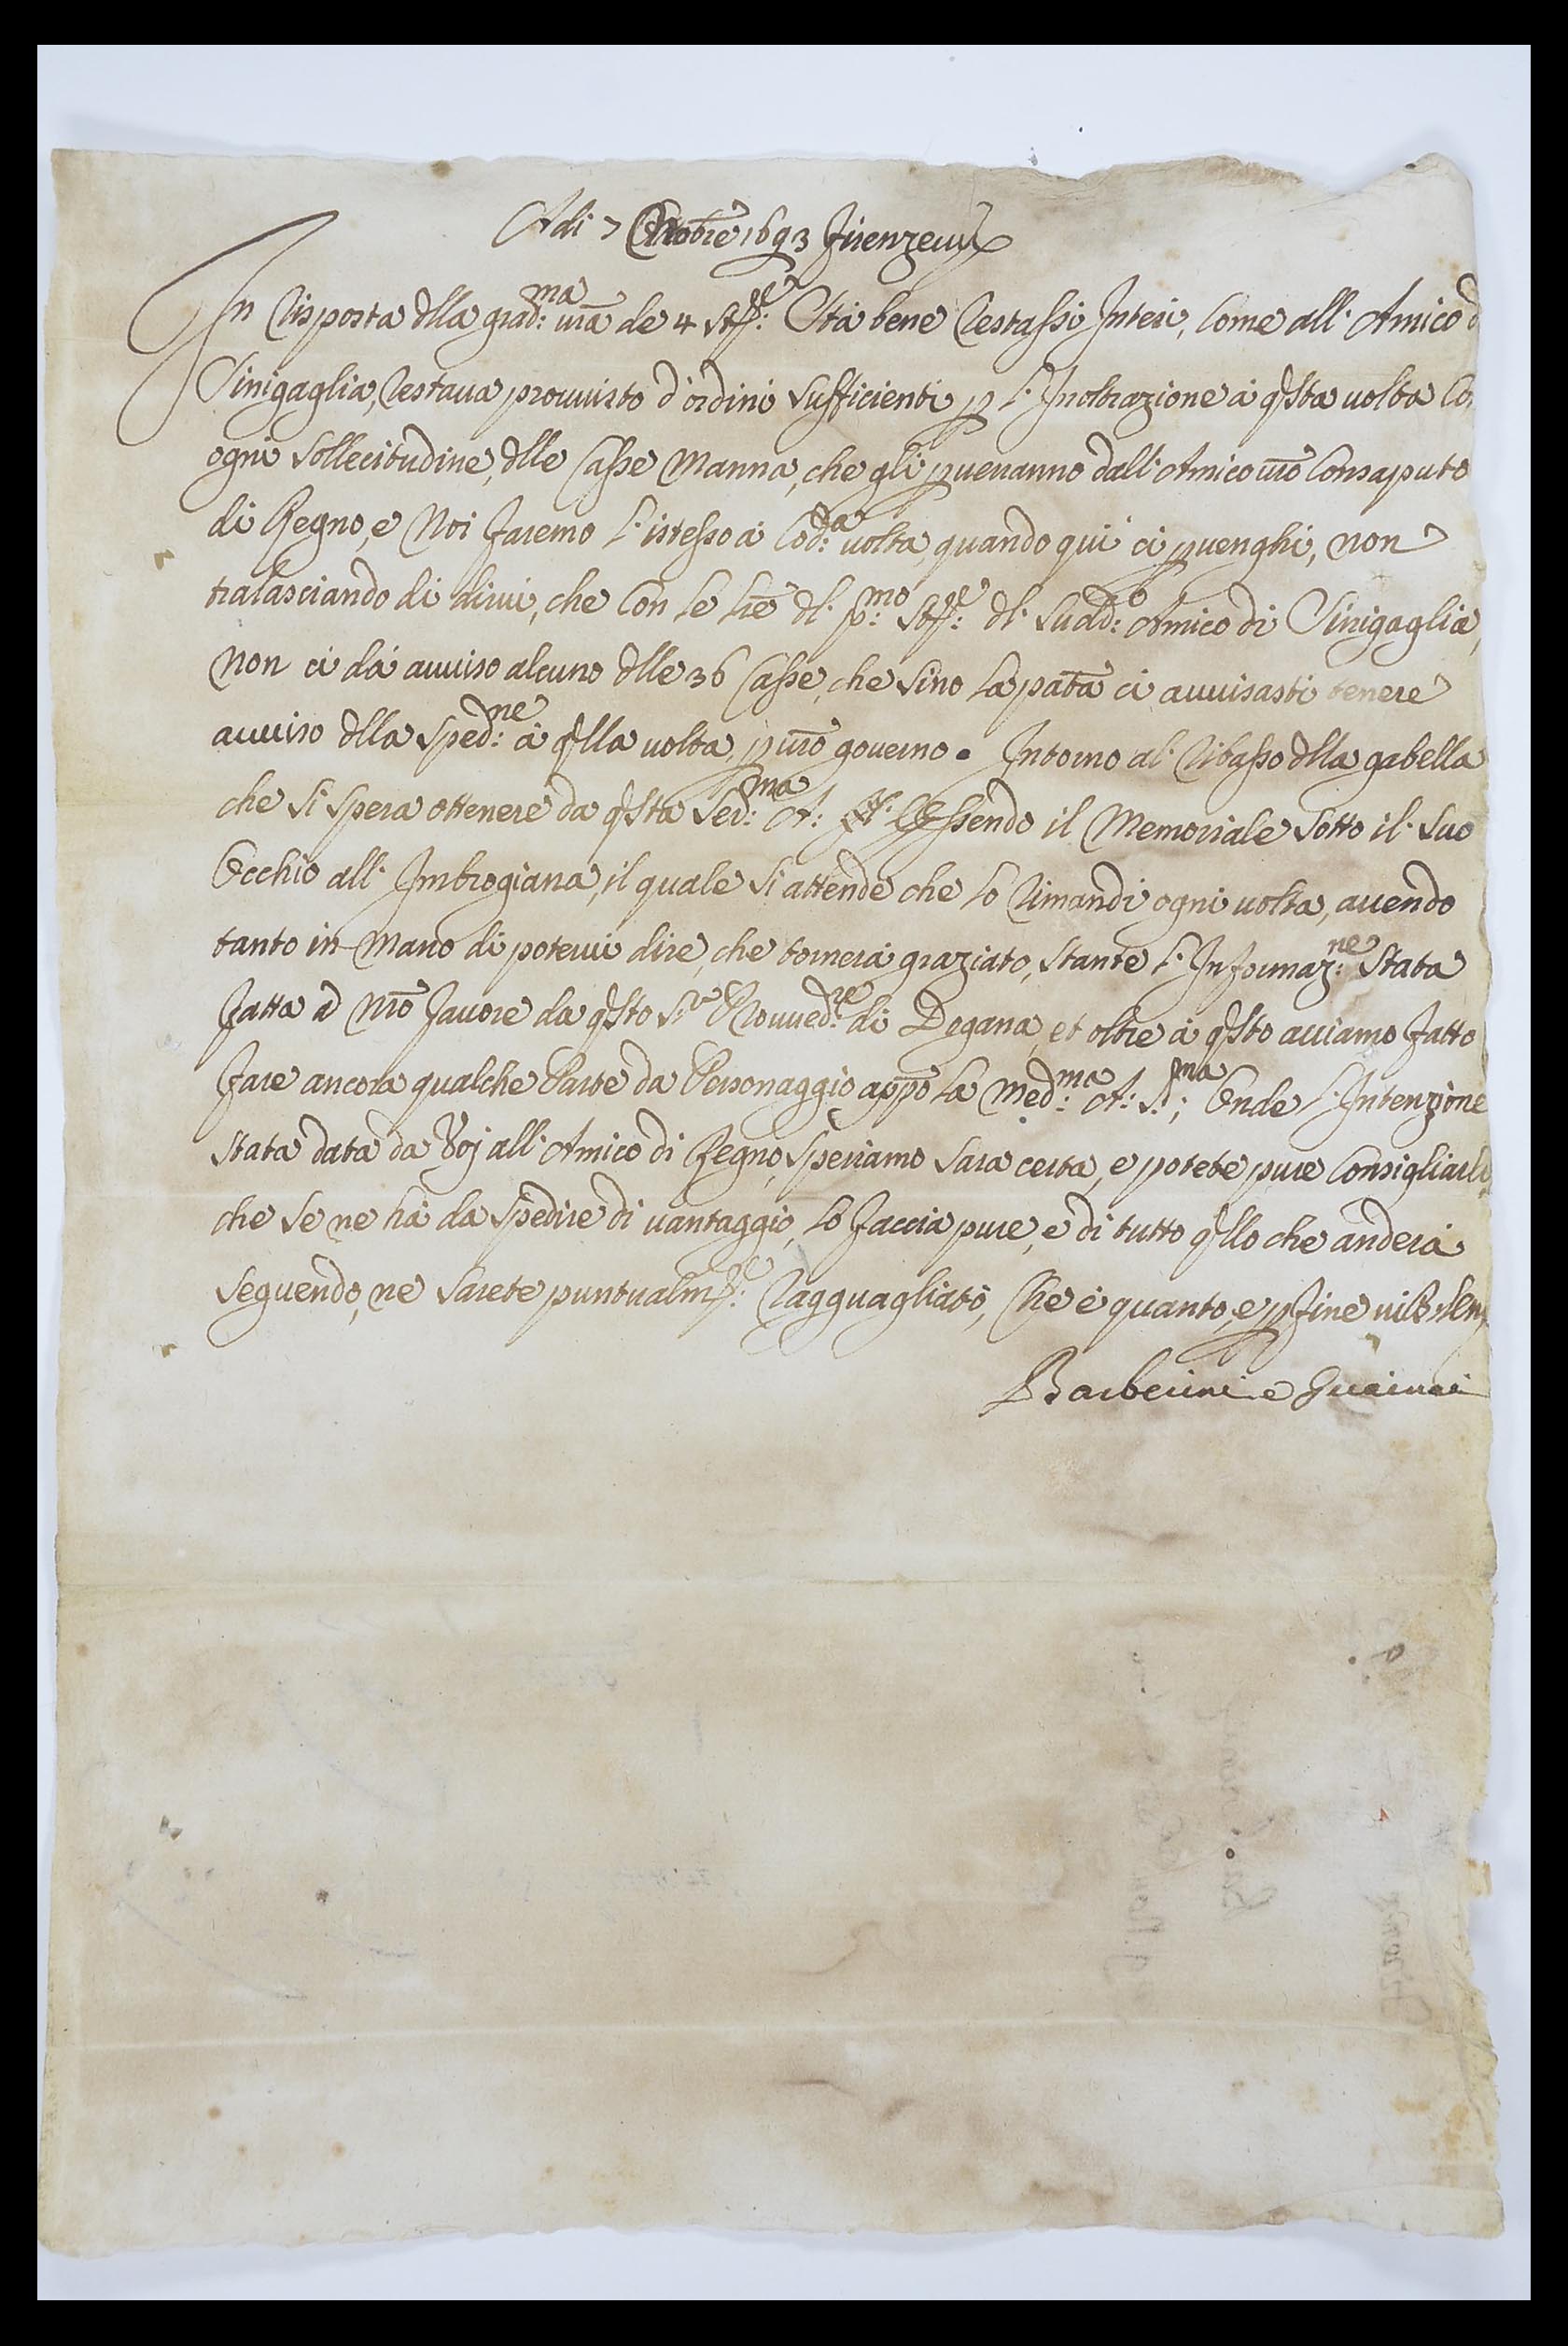 Adi 7 Ottobre 1693 Firenze
In risposta dlla grad:ma vra de 4 stte: Sta bene restassi Intesi, Come all' Amico d
Sinigaglia, restava provvisto d'ordini sufficienti p l'Inoltrazione à qsta volta Co
ogni sollecitudine, dlle Casse Manna, che gli pverranno dall' Amico vro Consaputo
di Regno, e Noi faremo l'istesso à Cod:a volta, quando qui ci pvenghi, non
tralasciando di dirvi, che Con le lre dl. p:mo stte: dl. sudd:o Amico di Sinigaglia,
non ci dà avviso alcuno dlle 36 Casse, che sino la pata ci avvisasti tenere
avviso dlla sped:ne à qlla volta, p vro governo. Intorno al. ribasso dlla gabella
che si spera ottenere da qsta Ser:ma A: Essendo il Memoriale sotto il suo
Occhio all' Imbrogiana, il quale si attende che lo rimandi ogni volta, avendo
tanto in Mano di potervi dire, che tornerà graziato, stante l'Informaz:ne stata
fatta à Nro favore da qsto S:re Provved:re di Dogana, et oltre à qsto aviamo fatto
fare ancora qualche Parte da Personaggio appo la Med:ma A: S:ma; Onde l'Intenzione
stata data da Voj all' Amico di Regno, speriamo sara certa, e potete pure Consigliarlo
che se ne hà da spedire di vantaggio, lo faccia pure, e di tutto qllo che anderà
seguendo, ne sarete puntualmte: ragguagliato, Che è quanto, e p fine
Barberini e Guainai